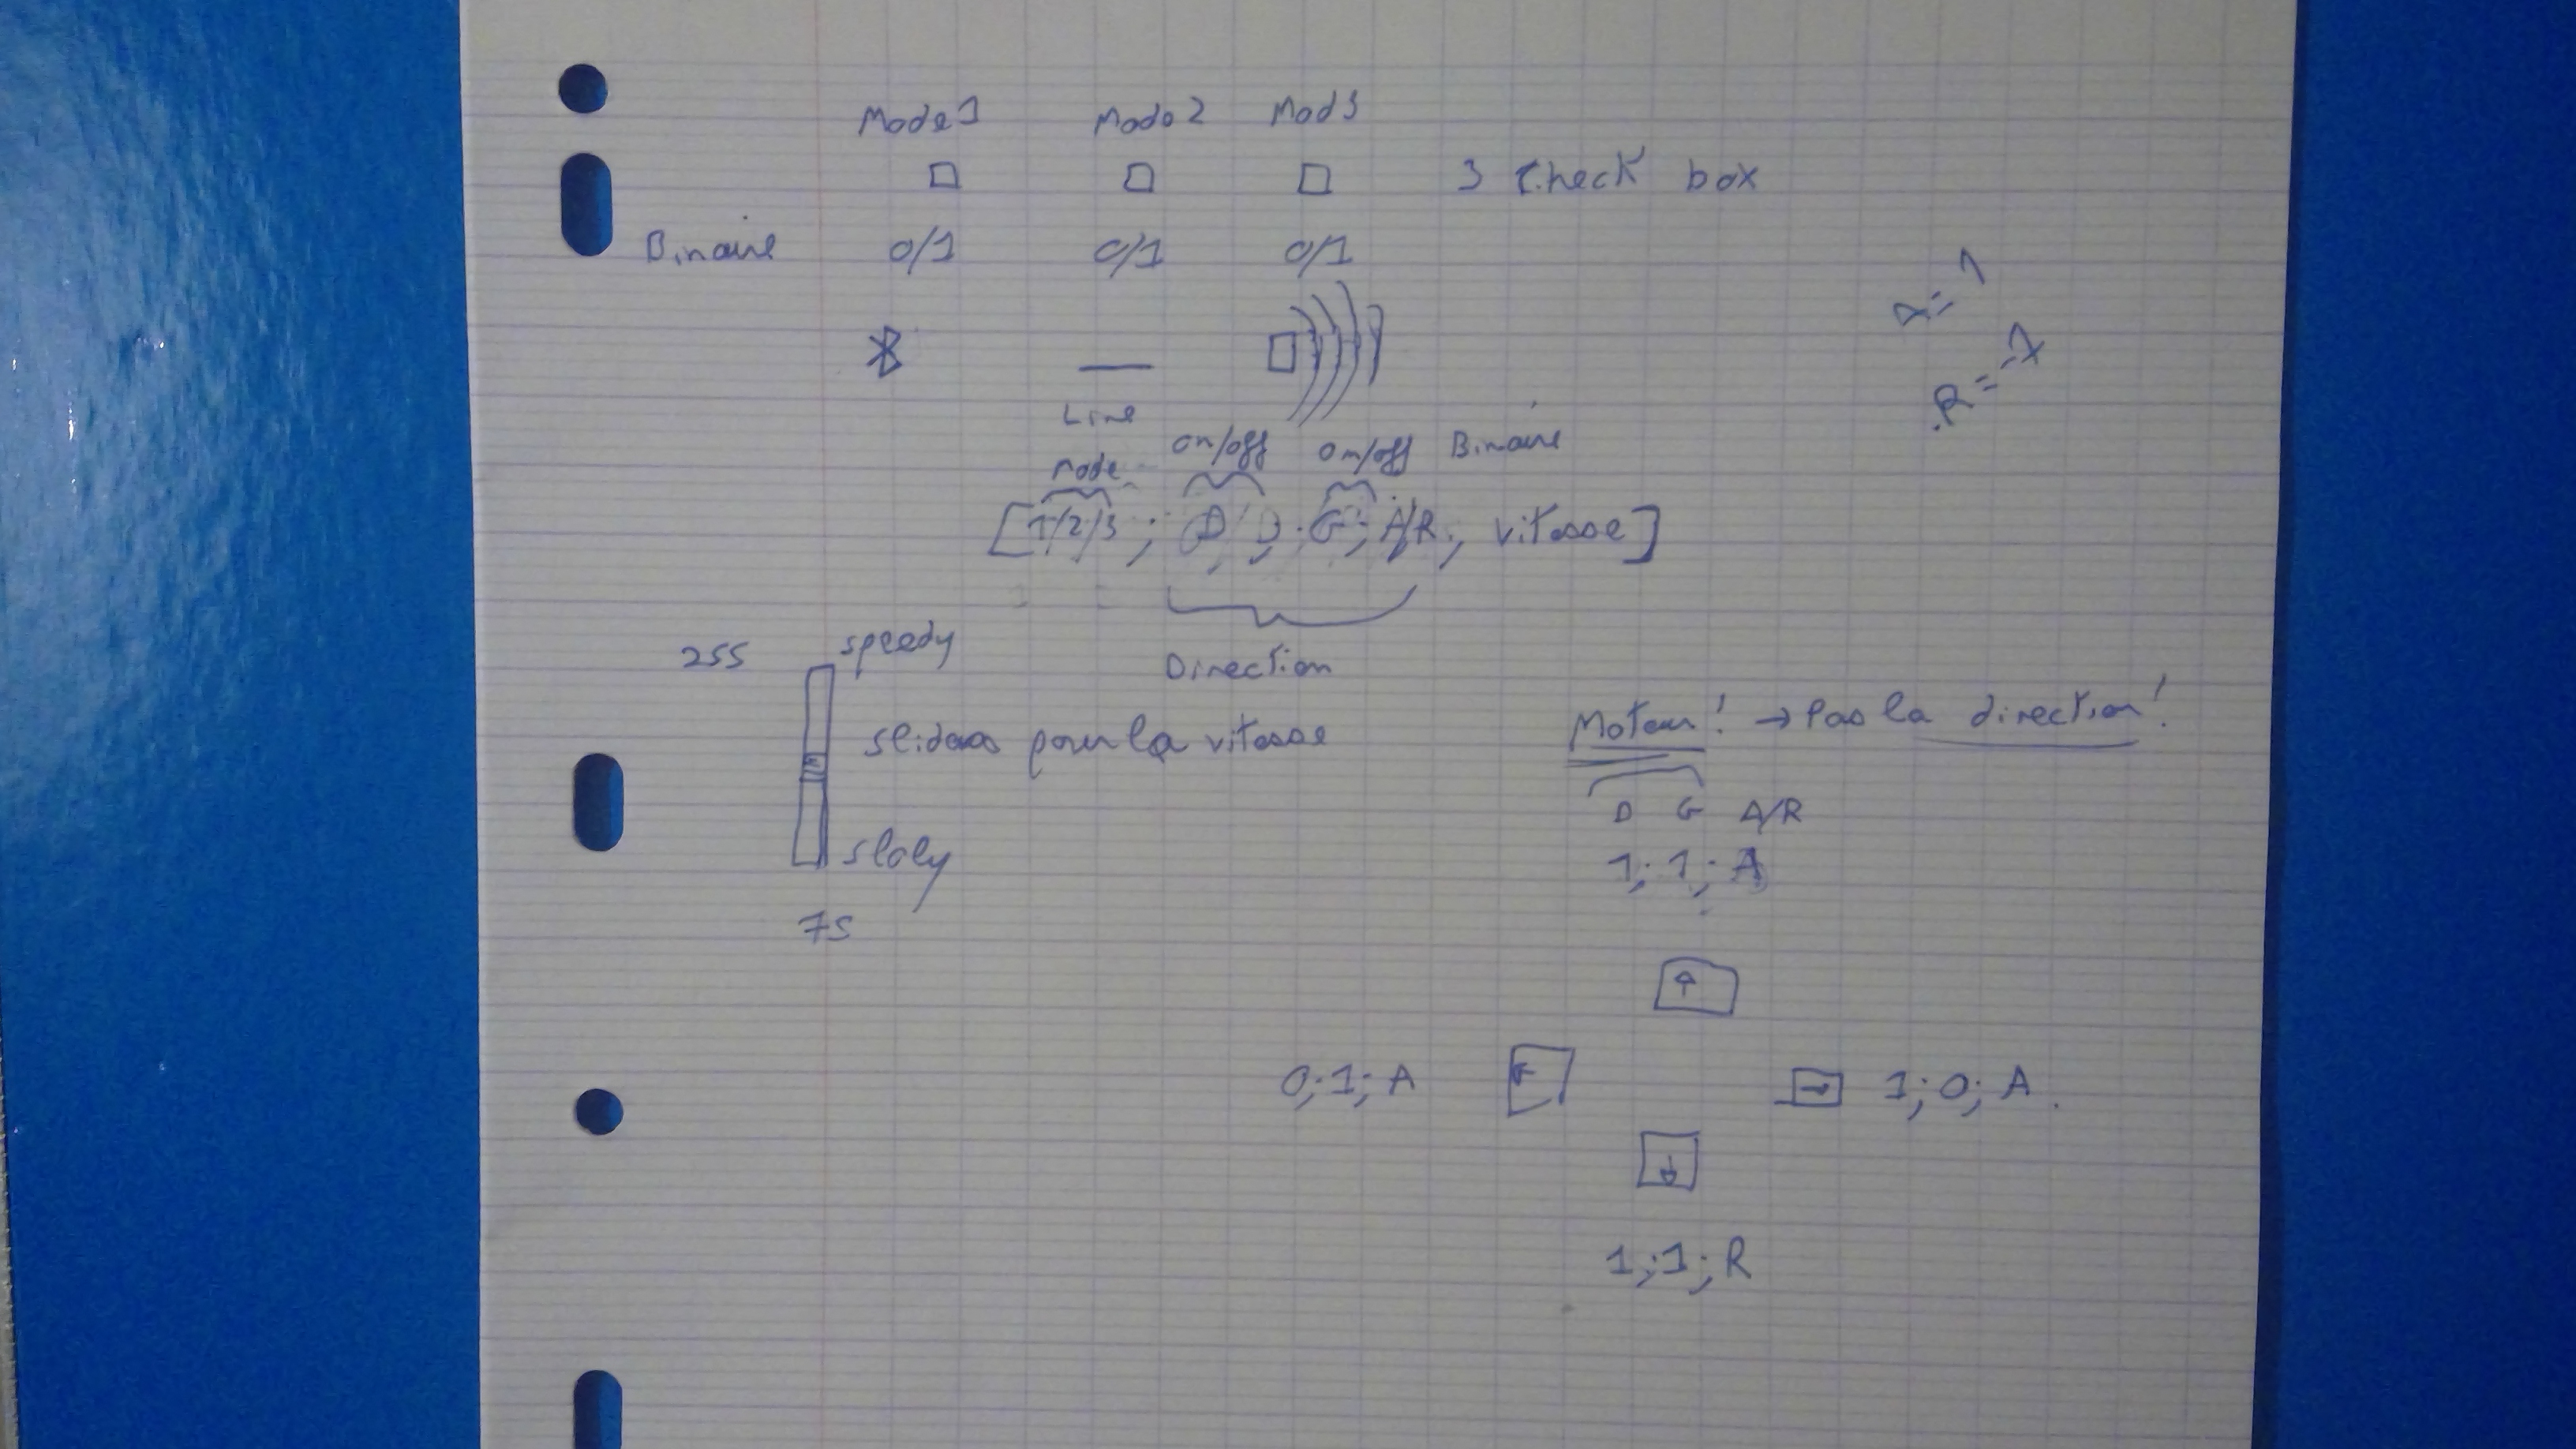 Mode 1 Mode 2 Mod 3
3 check box
Binaire 0/1 0/1 0/1
A = 1
R = -1
Line
Mode on/off on/off Binaire
[1/2/3 ; D ; G ; A/R ; vitesse]
Direction
255 speedy
sliders pour la vitesse
sloly
75
Moteur ! → Pas la direction !
D G A/R
1 ; 1 ; A
↑
0 ; 1 ; A ← → 1 ; 0 ; A.
↓
1 ; 1 ; R